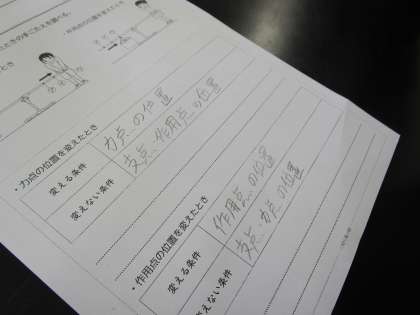 たときの手ごたえを調べる。
・力点の位置を変えたとき
変える条件 力点の位置
変えない条件 支点・作用点の位置
・作用点の位置を変えたとき
変える条件 作用点の位置
変えない条件 支点・力点の位置